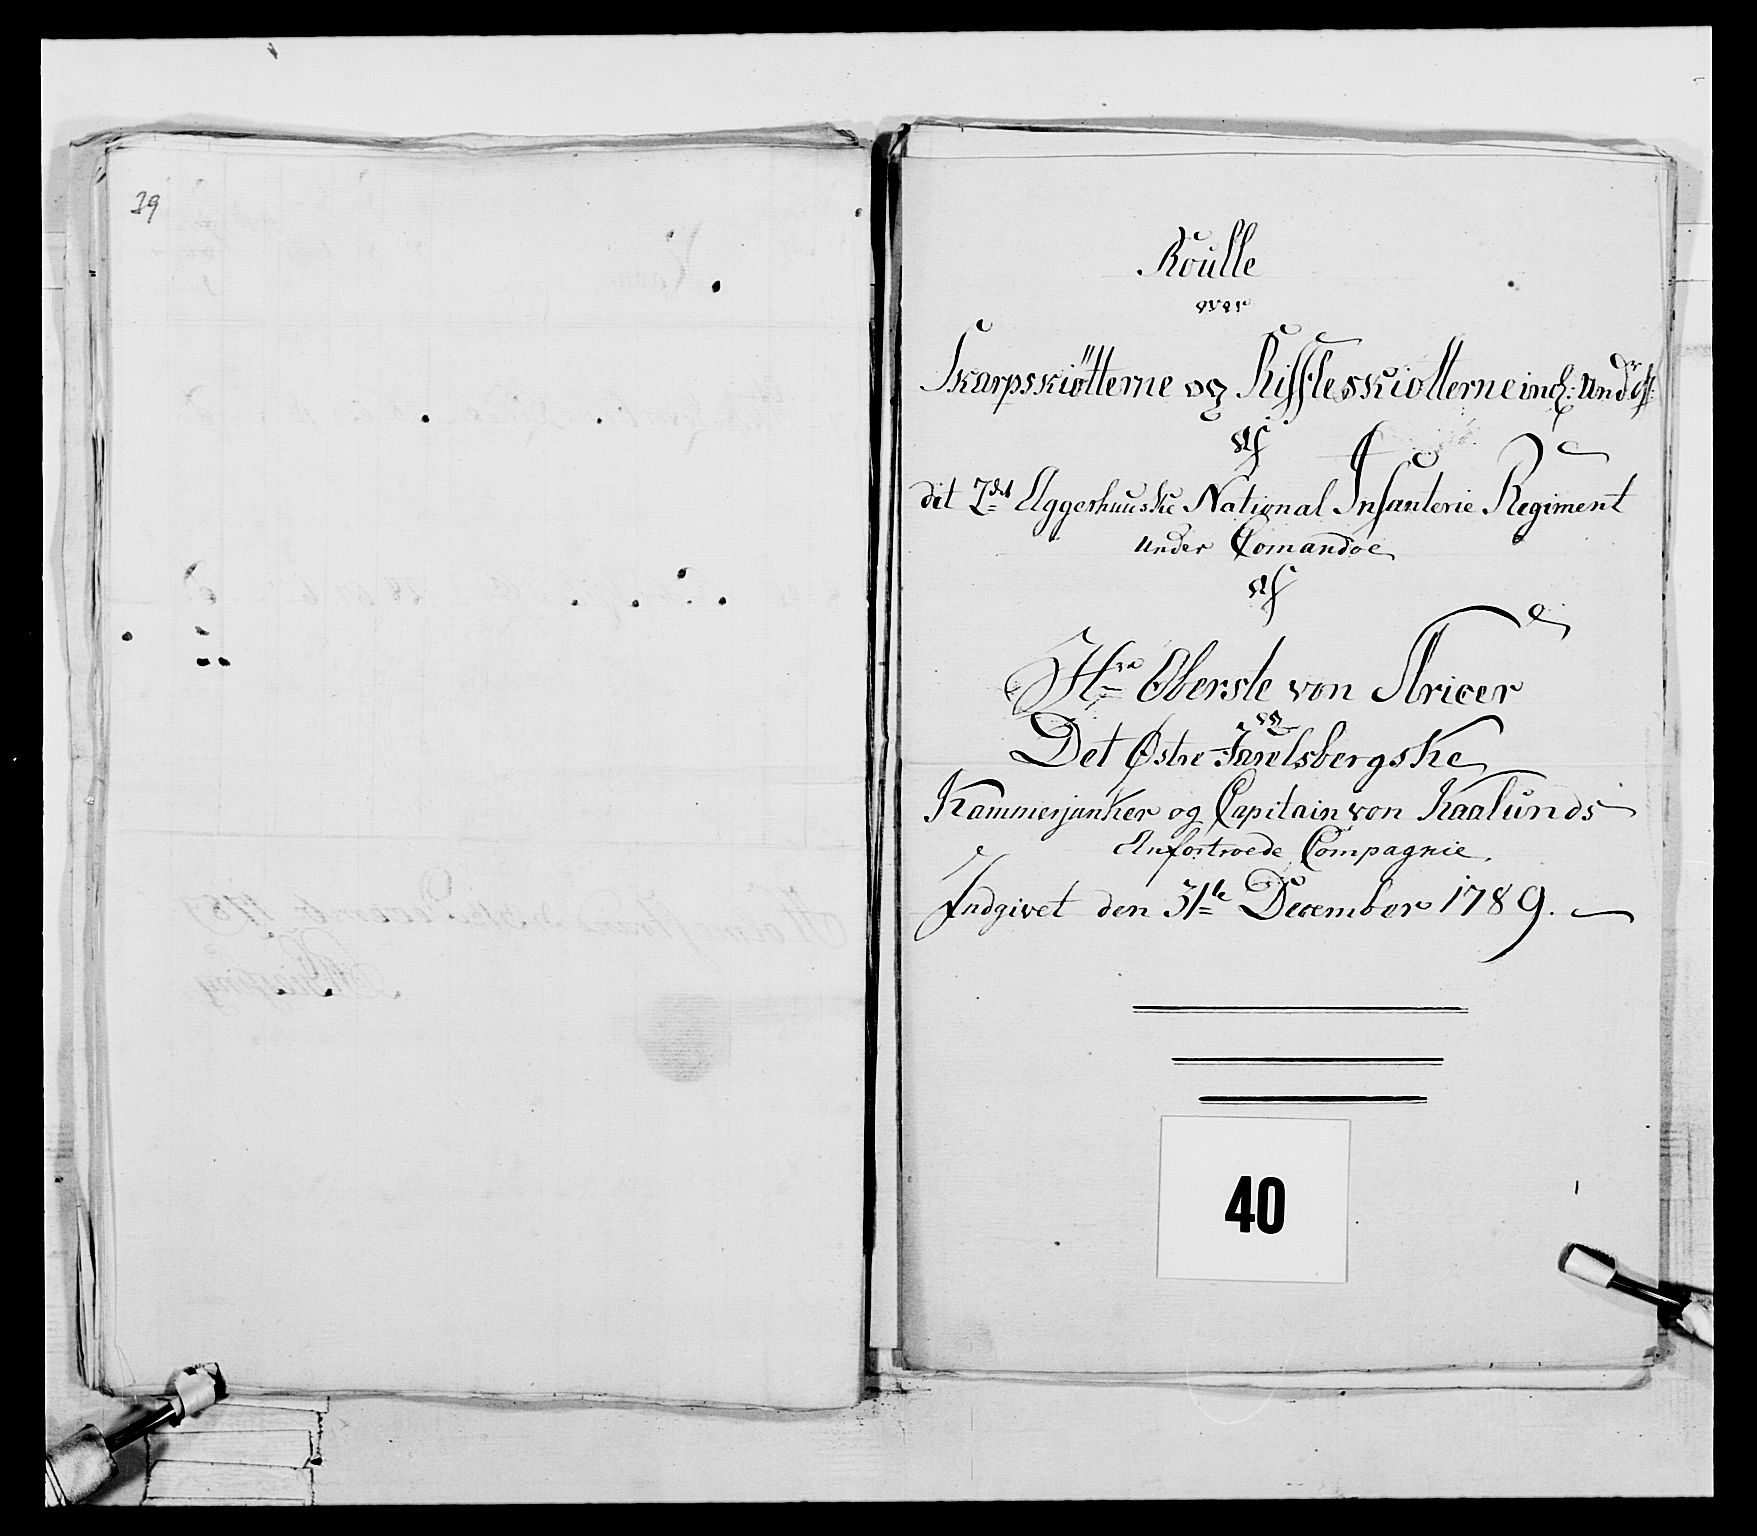 39
Roulle
over
Skarpskiötterne og Riffleskiotterne incl: Und.r off:
Af
dit 2det Aggerhuuske National Infanterie Regiment
under Comandoe
Af
Hrn Oberste von Kricer
og
Det Østre Jarelsbergske
Kammerjunker og Capitain von Kaalunds
Anfortroede Compagnie,
Indgivet den 31te December 1789.
40